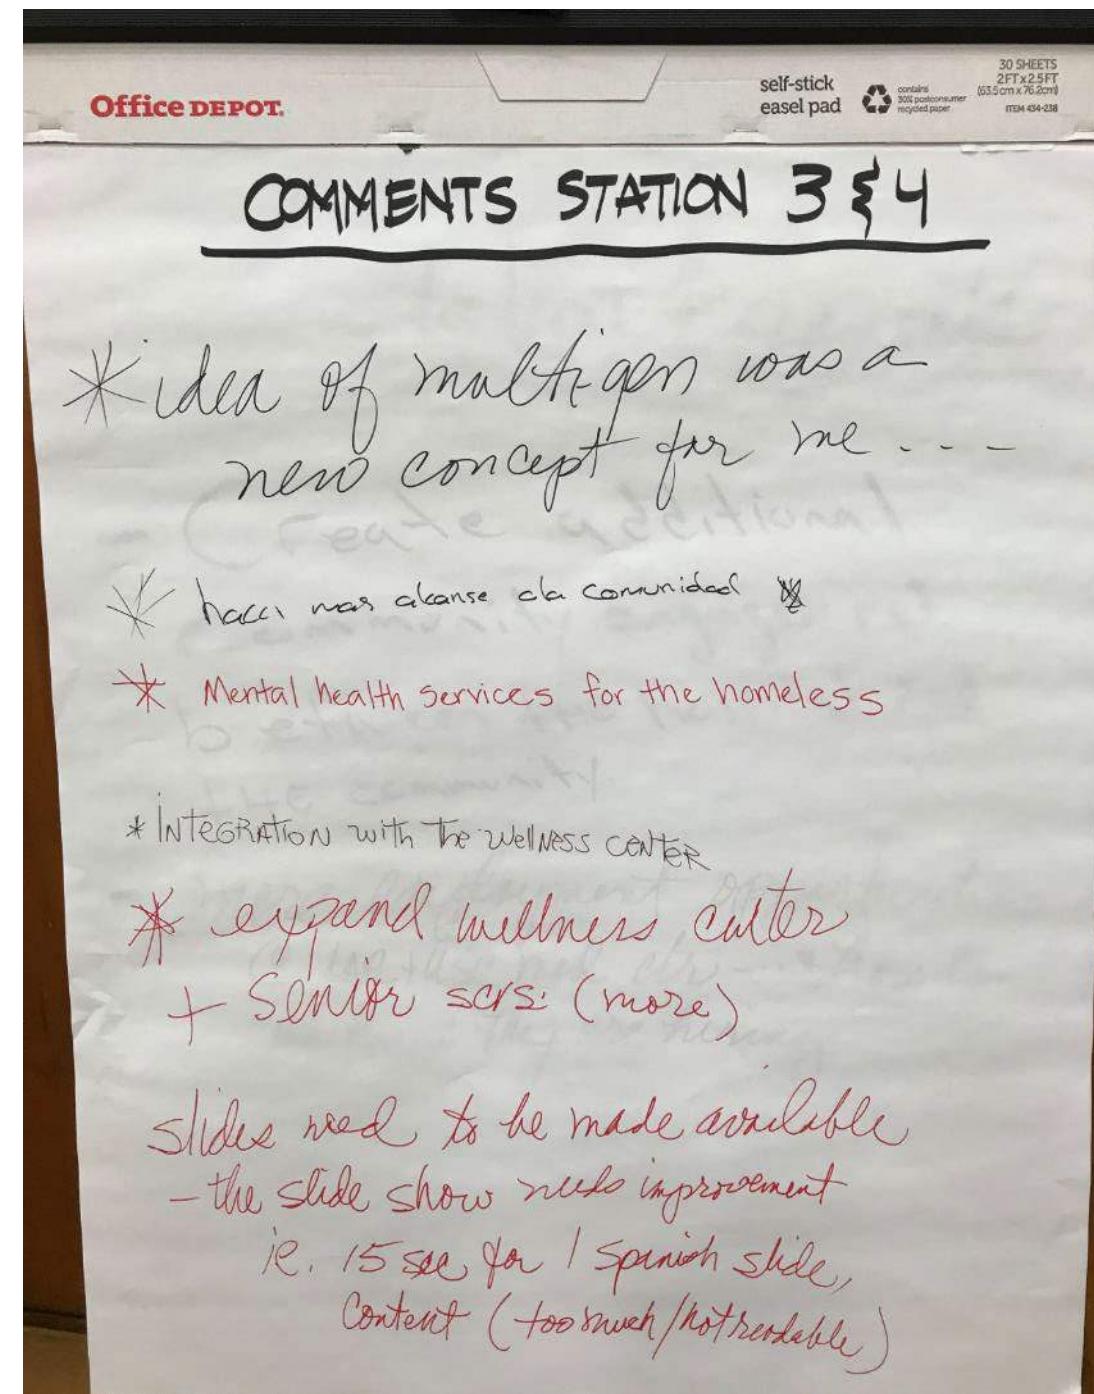 Office DEPOT.
self-stick
easel pad
contains
30% postconsumer
recycled paper
30 SHEETS
2FT x 2.5FT
(63.5cm x 76.2cm)
ITEM 434-238
COMMENTS STATION 3 & 4
* idea of multigen was a
new concept for me ....
* mas alcanse ala comunidad
* Mental health services for the homeless
* INTEGRATION with The wellNess CENTER
* expand wellness center
+ Senior scrs: (more)
slides need to be made available
- the slide show needs improvement
ie. 15 sec for 1 Spanish slide,
Content (too much/not readable)